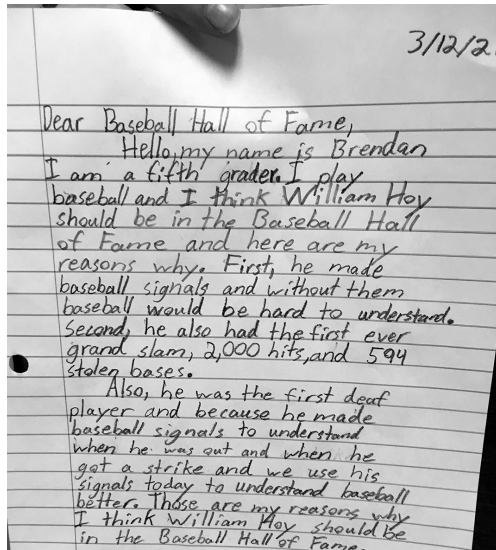 3/12/2
Dear Baseball Hall of Fame,
Hello, my name is Brendan
I am a fifth grader. I play
baseball and I think William Hoy
should be in the Baseball Hall
of Fame and here are my
reasons why. First, he made
baseball signals and without them
baseball would be hard to understand.
Second, he also had the first ever
grand slam, 2,000 hits, and 594
stolen bases.
Also, he was the first deaf
player and because he made
baseball signals to understand
when he was out and when he
got a strike and we use his
signals today to understand baseball
better. Those are my reasons why
I think William Hoy should be
in the Baseball Hall of Fame.